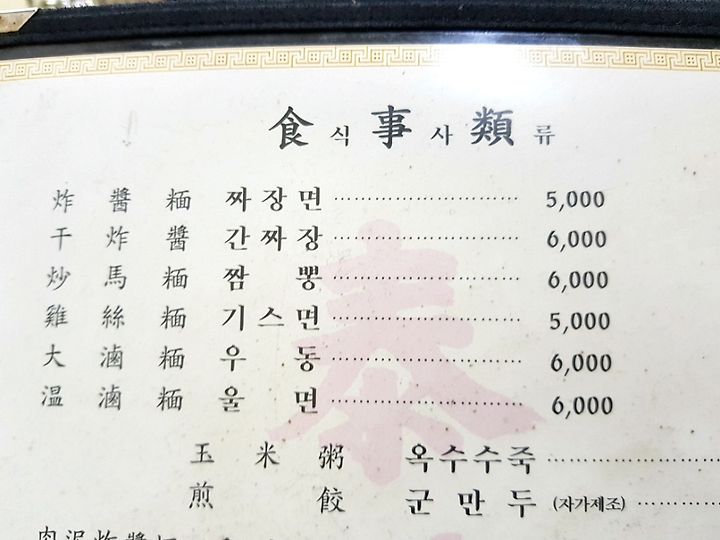 食식事사類류
炸醬粬 짜장면 5,000
干炸醬 간짜장 6,000
炒馬粬 짬뽕 6,000
雞絲粬 기스면 5,000
大滷粬 우동 6,000
温滷粬 울면 6,000
玉米粥 옥수수죽
煎餃 군만두 (자가제조)
肉泥炸醬